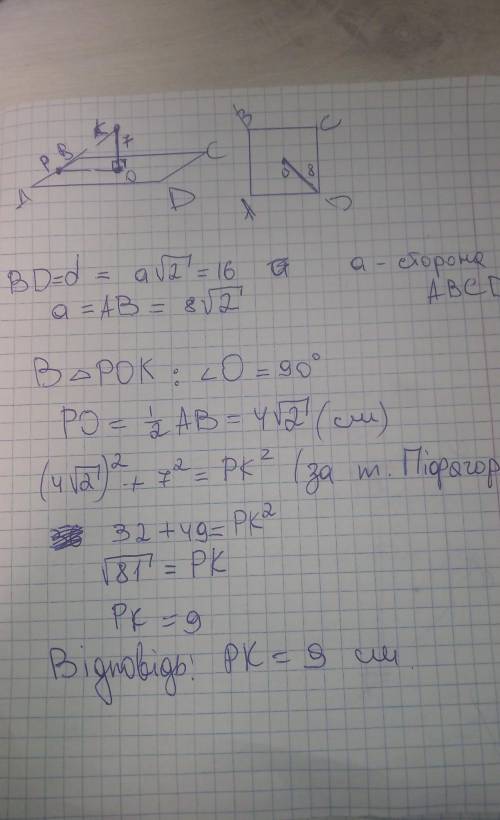 K
7
P B C
O
A D
B C
O 8
A D
BD = d = a√2 = 16 a - сторона
a = AB = 8√2 ABCD
В △POK : ∠O = 90°
PO = 1/2 AB = 4√2 (см)
(4√2)² + 7² = PK² (за т. Піфагор
32 + 49 = PK²
√81 = PK
PK = 9
Відповідь: PK = 9 см.